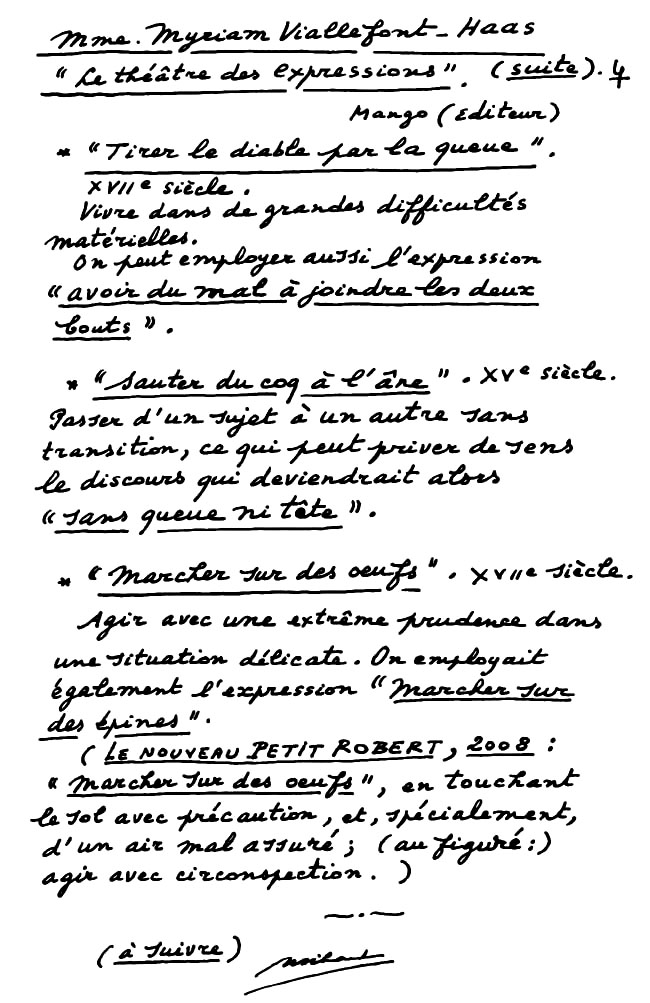 Mme. Myriam Viallefont-Haas
"Le théâtre des expressions". (suite). 4
Mango (Editeur)
* "Tirer le diable par la queue".
XVIIe siècle.
Vivre dans de grandes difficultés
matérielles.
On peut employer aussi l'expression
"avoir du mal à joindre les deux
bouts".
* "Sauter du coq à l'âne". XVe siècle.
Passer d'un sujet à un autre sans
transition, ce qui peut priver de sens
le discours qui deviendrait alors
"sans queue ni tête".
* "Marcher sur des oeufs". XVIIe siècle.
Agir avec une extrême prudence dans
une situation délicate. On employait
également l'expression "Marcher sur
des épines".
(LE NOUVEAU PETIT ROBERT, 2008 :
"Marcher sur des oeufs", en touchant
le sol avec précaution, et, spécialement,
d'un air mal assuré ; (au figuré :)
agir avec circonspection. )
(à suivre)